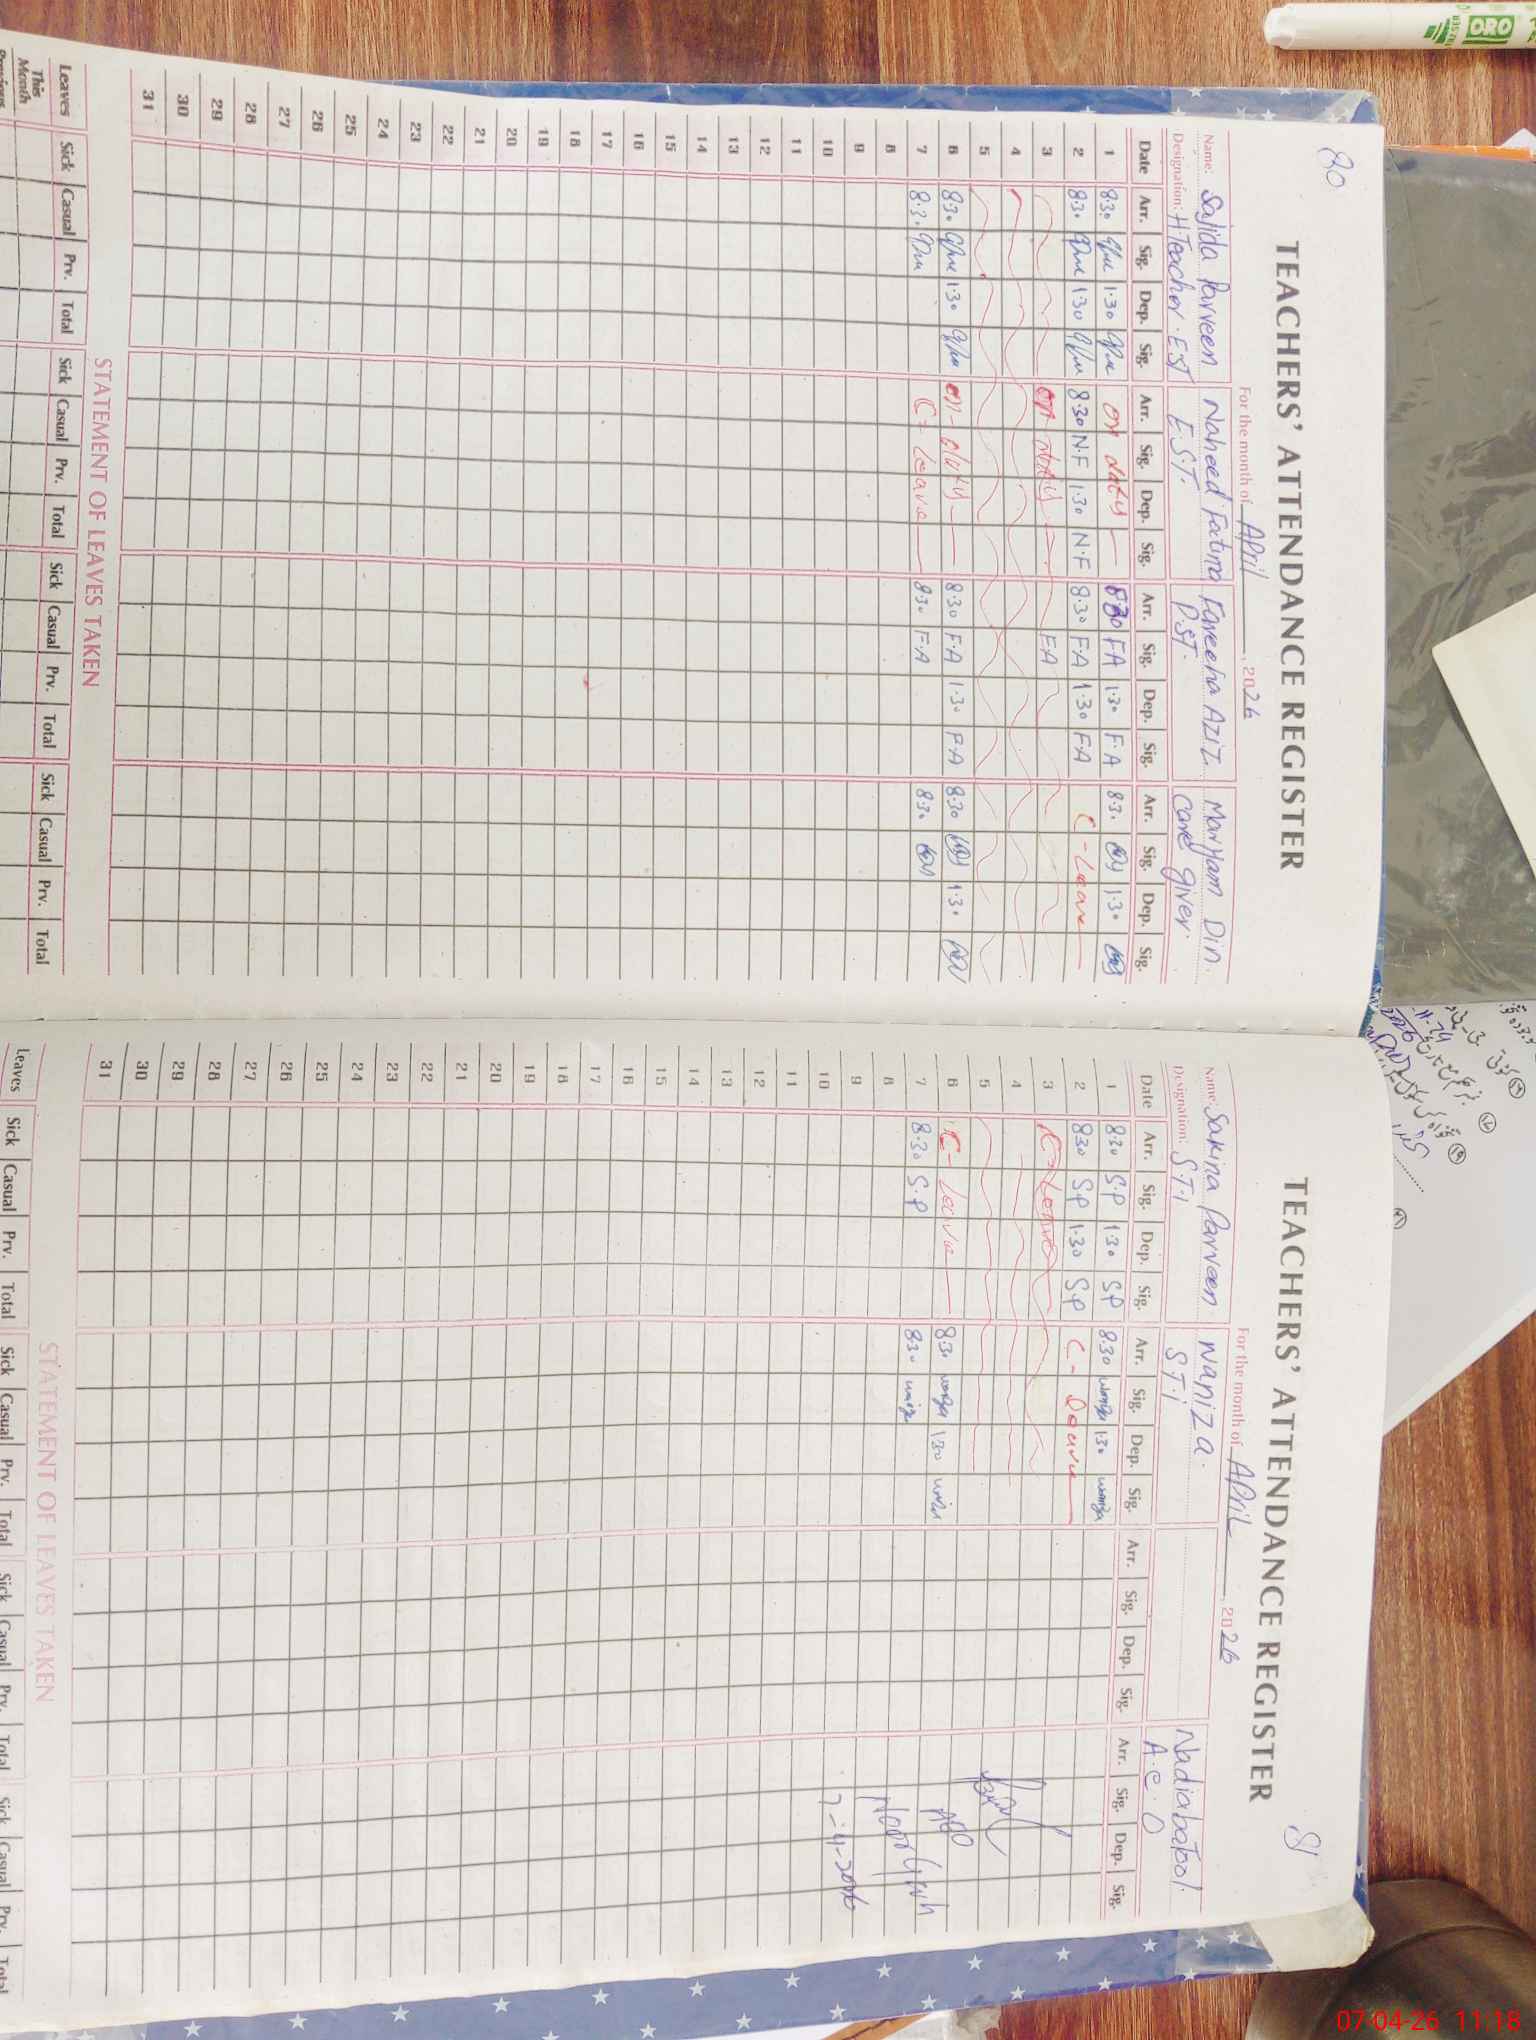 80
TEACHERS' ATTENDANCE REGISTER
For the month of April, 2026
Name: Sajida Parveen Naheed Fatima Fareeha Aziz. Maryam Din.
Designation: H.Teacher. EST E.S.T. P.ST. Care giver.
Date Arr. Sig. Dep. Sig. Arr. Sig. Dep. Sig. Arr. Sig. Dep. Sig. Arr. Sig. Dep. Sig.
1 8:30 1:30 on duty 8:30 F.A 1:30 F.A 8:30 1:30
2 8:30 1:30 8:30 N.F 1:30 N.F 8:30 F.A 1:30 F.A C-Leave
3 on duty F.A
4
5
6 8:30 1:30 on-duty 8:30 F.A 1:30 F.A 8:30 1:30
7 8:30 C-leave 8:30 F.A 8:30
8
9
10
11
12
13
14
15
16
17
18
19
20
21
22
23
24
25
26
27
28
29
30
31
STATEMENT OF LEAVES TAKEN
Leaves Sick Casual Prv. Total Sick Casual Prv. Total Sick Casual Prv. Total Sick Casual Prv. Total
This Month
Previous
81
TEACHERS' ATTENDANCE REGISTER
For the month of April, 2026
Name: Sakina Parveen Waniza. Nadia batool.
Designation: S.T.I S.T.i A.E.O
Date Arr. Sig. Dep. Sig. Arr. Sig. Dep. Sig. Arr. Sig. Dep. Sig. Arr. Sig. Dep. Sig.
1 8:30 S.P 1:30 S.P 8:30 waniza 1:30 waniza
2 8:30 S.P 1:30 S.P C-Leave
3 C-Leave
4
5
6 C-Leave 8:30 waniza 1:30 waniza
7 8:30 S.P 8:30 waniza
AEO
8
9
10
7-4-2026
11
12
13
14
15
16
17
18
19
20
21
22
23
24
25
26
27
28
29
30
31
STATEMENT OF LEAVES TAKEN
Leaves Sick Casual Prv. Total Sick Casual Prv. Total Sick Casual Prv. Total Sick Casual Prv. Total
ORO
07-04-26 11:18